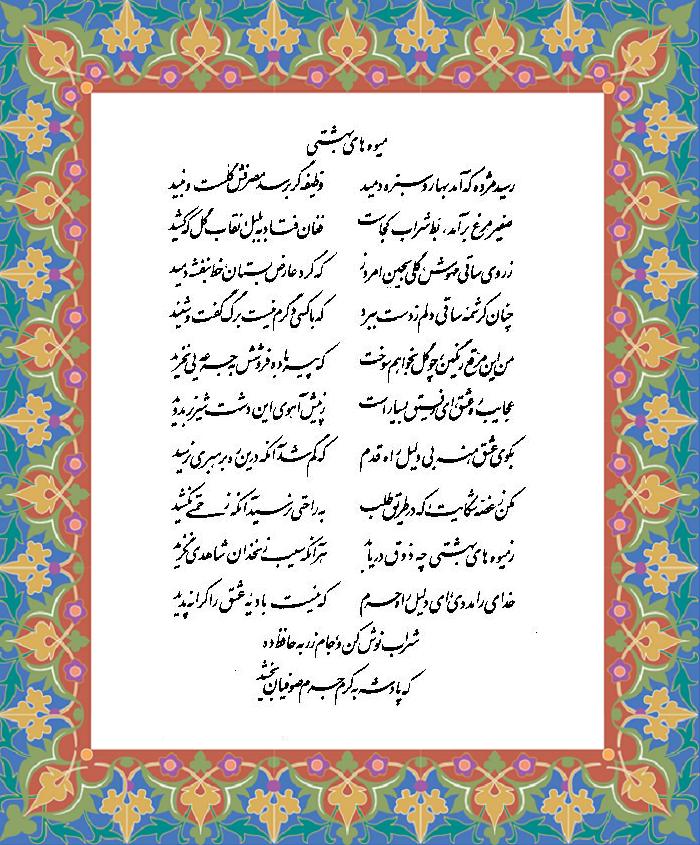 میوه های بهشتی
رسید مژده که آمد بهار و سبزه دمید وظیفه گر برسد مصرفش گلست و نبید
صفیر مرغ برآمد، بط شراب کجاست فغان فتاد به بلبل نقاب گل که کشید
ز روی ساقی مهوش گلی بچین امروز که گرد عارض بستان خط بنفشه دمید
چنان کرشمه ساقی دلم ز دست ببرد که با کسی دگرم نیست برگ گفت و شنید
من این مرقع رنگین چو گل بخواهم سوخت که پیر باده فروشش به جرعه یی نخرید
عجایب ره عشق ای رفیق بسیار است ز پیش آهوی این دشت شیر نر بدوید
بکوی عشق منه بی دلیل راه قدم که گم شد آنکه درین ره برهبری نرسید
مکن ز غصه شکایت که در طریق طلب به راحتی نرسید آنکه زحمتی نکشید
ز میوه های بهشتی چه ذوق دریابد هر آنکه سیب زنخدان شاهدی نگزید
خدای را مددی ای دلیل راه حرم که نیست بادیه عشق را کرانه پدید
شراب نوش کن و جام زر به حافظ ده
که پادشه به کرم جرم صوفیان بخشید